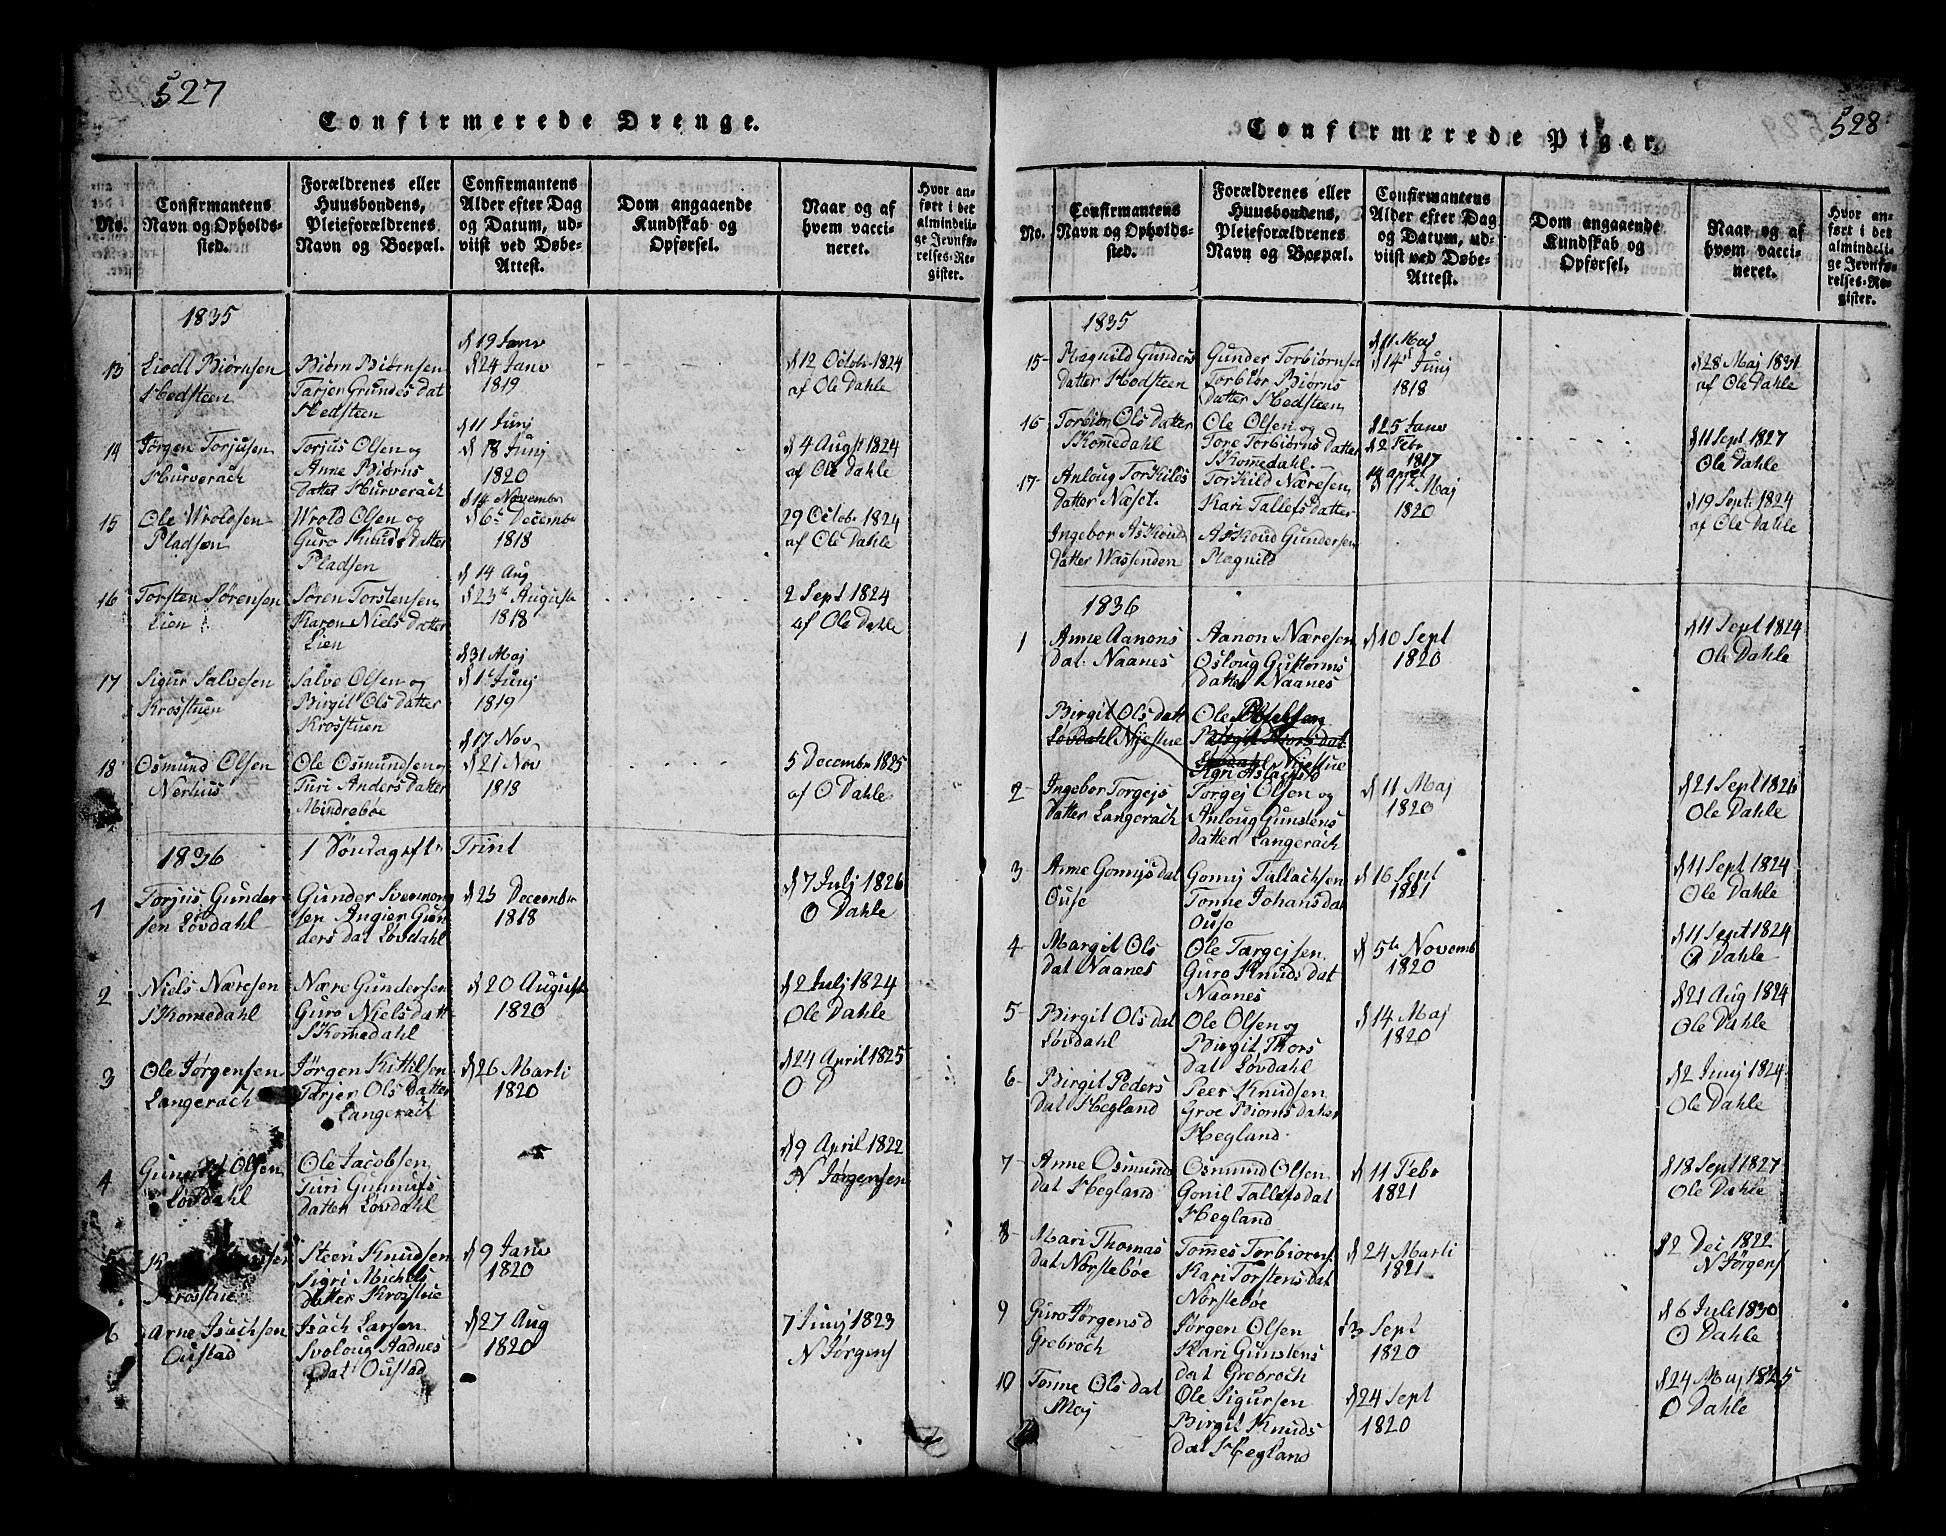 527
Confirmerede Drenge.
No.
Confirmantens
Navn og Opholds-
sted.
Forældrenes eller
Huusbondens,
Pleieforældrenes
Navn og Boepæl.
Confirmantens
Alder efter Dag
og Datum, ud-
viist ved Døbe-
Attest.
Dom angaaende
Kundskab og
Opførsel.
Naar og af
hvem vacci-
neret.
Hvor an-
ført i det
almindeli-
ge Jevnfø-
relses-Re-
gister.
1835
13 Liodl Biørnsen
Hedsteen
Biørn Biørnsen
Tarjer Gunders dat
Hedsteen
d 19 Janv
d 24 Janv
1819
d 12 Octobr 1824
af Ole Dahle
14 Jørgen Torjusen
Hurverach
Torjus Olsen og
Anne Biørns
datter Hurverach
d 11 Junj
d 18 Junj
1820
d 4 Augst 1824
af Ole Dahle
15 Ole Wroldsen
Pladsen
Wrold Olsen og
Guro Knuds datter
Pladsen
d 14 Novembr
d 6te Decembr
1818
29 Octobr 1824
af Ole Dahle
16 Torsten Sørensen
Lien
Søren Torstensen
Karen Niels datter
Lien
d 14 Aug
d 23de Augusti
1818
2 Sept 1824
af Ole Dahle
17 Sigur Salvesen
Krosstuen
Salve Olsen og
Birgit Ols datter
Krosstuen
d 31 Maj
d 1te Junj
1819
18 Osmund Olsen
Nerhus
Ole Osmundsen
Turi Anders datter
Mindrebøe
d 17 Nov
d 21 Nov
1818
5 Decembr 1825
af O Dahle
1836
1 Søndag eftr Trint
1 Torjus Gunder
sen Løvdahl
Gunder Svennung
sen Angier Gun
ders dat Løvdahl
d 23 Decembr
1818
d 7 Julj 1826
O Dahle
2 Niels Næresen
Skomedahl
Nære Gundersen
Guro Niels datt
Skomedahl
d 20 Augusti
1820
d 2 Julj 1824
Ole Dahle
3 Ole Jørgensen
Langerach
Jørgen Kittilsen
Tarjer Ols datter
Langerach
d 26 Marti
1820
d 24 April 1825
O D
4 Olsen
Løvdahl
Ole Jacobsen
Turi Gunnufs
datter Løvdahl
d 9 April 1822
N Jørgensen
5
Krosstue
Steen Knudsen
Sigri Michels
datter Krosstue
d 9 Janv
1820
6 Arne Isachsen
Oustad
Isach Larsen
Svoloug Aadnes
dat Oustad
d 27 Aug
1820
7 Junj 1823
N Jørgens
528
Confirmerede Piger.
No.
Confirmantens
Navn og Opholds-
sted.
Forældrenes eller
Huusbondens,
Pleieforældrenes
Navn og Boepæl.
Confirmantens
Alder efter Dag
og Datum, ud-
viist ved Døbe-
Attest.
Dom angaaende
Kundskab og
Opførsel.
Naar og af
hvem vacci-
neret.
Hvor an-
ført i det
almindeli-
ge Jevnfø-
relses-Re-
gister.
1835
15 Ragnild Gunders
datter Hedsteen
Gunder Torbiørnsen
Torbiør Biørns
datter Hedsteen
d 11 Maj
d 14de Junj
1818
d 28 Maj 1831
af Ole Dahle
16 Torbiør Ols datter
Skomedahl
Ole Olsen og
Tore Torbiørns datter
Skomedahl
d 25 Janv
d 2 Febr
1817
d 11 Sept. 1827
Ole Dahle
17 Anloug Torkilds
datter Næset.
Torkild Næresen
Kari Tallefs datter
14 April
d 11te Maj
1820
d 19 Septr 1824
af Ole Dahle
Ingebor Askoud
datter Wassenden
Askoud Gundersen
Ragnild
1836
1 Anne Aanons
dat. Naanes
Aanon Næresen
Osloug Guttorms
datter Naanes
d 10 Sept
1820
d 11 Sept 1824
Ole Dahle
Birgit Ols datt
Løvdahl Nyestue
Ole
Birgit Thors dat
Løvdahl Nyestue
Sigri Aslachsd
2 Ingebor Torgejs
datter Langerach
Torgej Olsen og
Anloug Gunstens
datter Langerach
d 11 Maj
1820
d 21 Sept 1826
Ole Dahle
3 Anne Gomujs dat
Ouse
Gomuj Tallachsen
Tonne Johans dat
Ouse
d 16 Sept
1821
d 11 Sept 1824
Ole Dahle
4 Margit Ols
dat Naanes
Ole Targejsen
Guro Knuds dat
Naanes
d 5te Novemb
1820
d 11 Sept 1824
O Dahle
5 Birgit Ols dat
Løvdahl
Ole Olsen og
Birgit Thors
dat Løvdahl
d 14 Maj
1820
d 21 Aug 1824
Ole Dahle
6 Birgit Peders
dat Hegland
Peer Knudsen
Groe Biørns datter
Hegland
d 2 Junj 1824
Ole Dahle
7 Anne Osmunds
dat Hegland
Osmund Olsen
Gonil Tallefs dat
Hegland
d 11 Febr
1821
d 18 Sept 1827
Ole Dahle
8 Mari Thomas
dat Norstebøe
Tomes Torbiørns
Kari Torstens dat
Norstebøe
d 24 Marti
1821
d 2 Dec 1822
N Jørgens
9 Guro Jørgensd
Grebroch
Jørgen Olsen
Kari Gunstens
dat Grebroch
d 3 Sept
1820
d 6 Jule 1830
O Dahle
10 Tonne Ols dat
Moj
Ole Sigursen
Birgit Knuds
dat Hegland
d 24 Sept
1820
d 24 Maj 1825
O Dahle